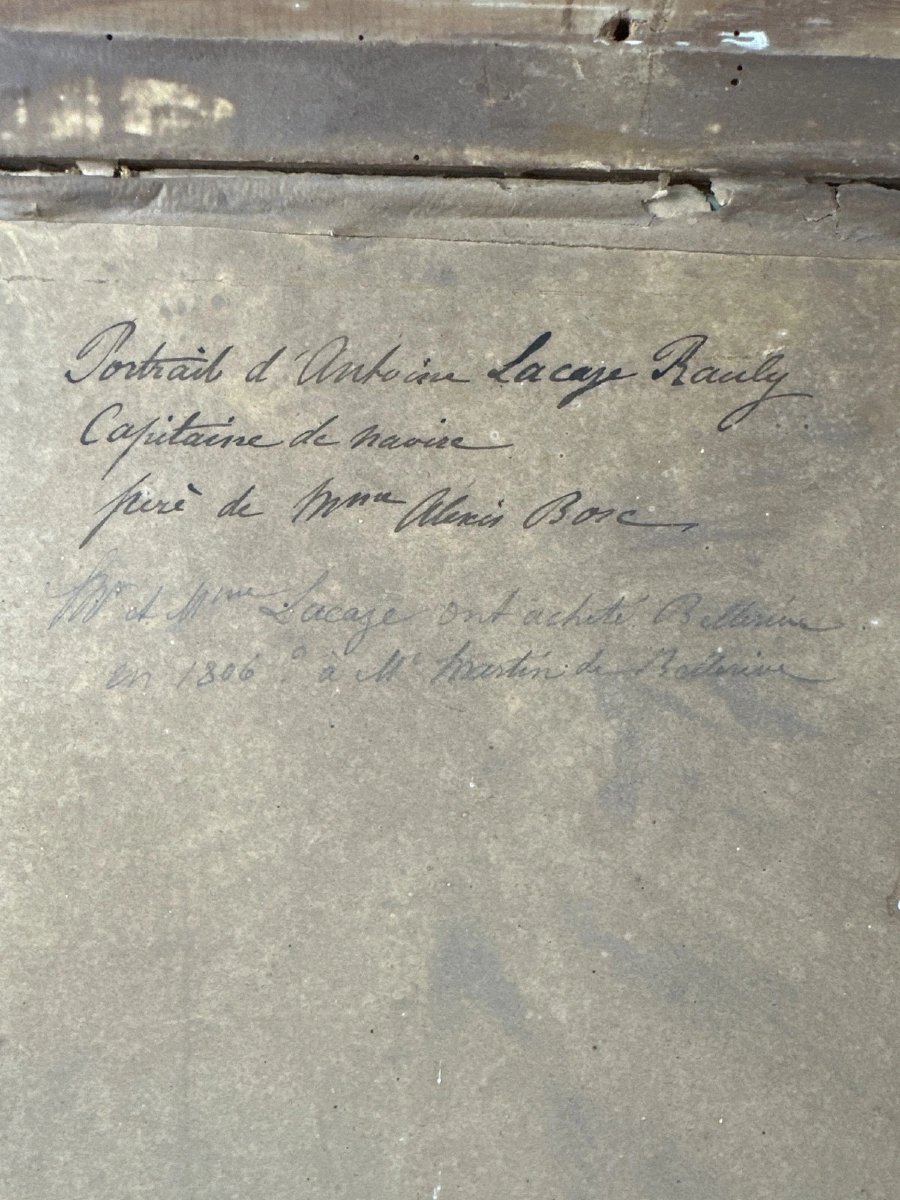 Portrait d'Antoine Lacaze Rauly
Capitaine de navire
père de Mme Alexis Bosc
Mr et Mme Lacaze ont acheté Bellerive
en 1806 à Mr Martin de Bellerive